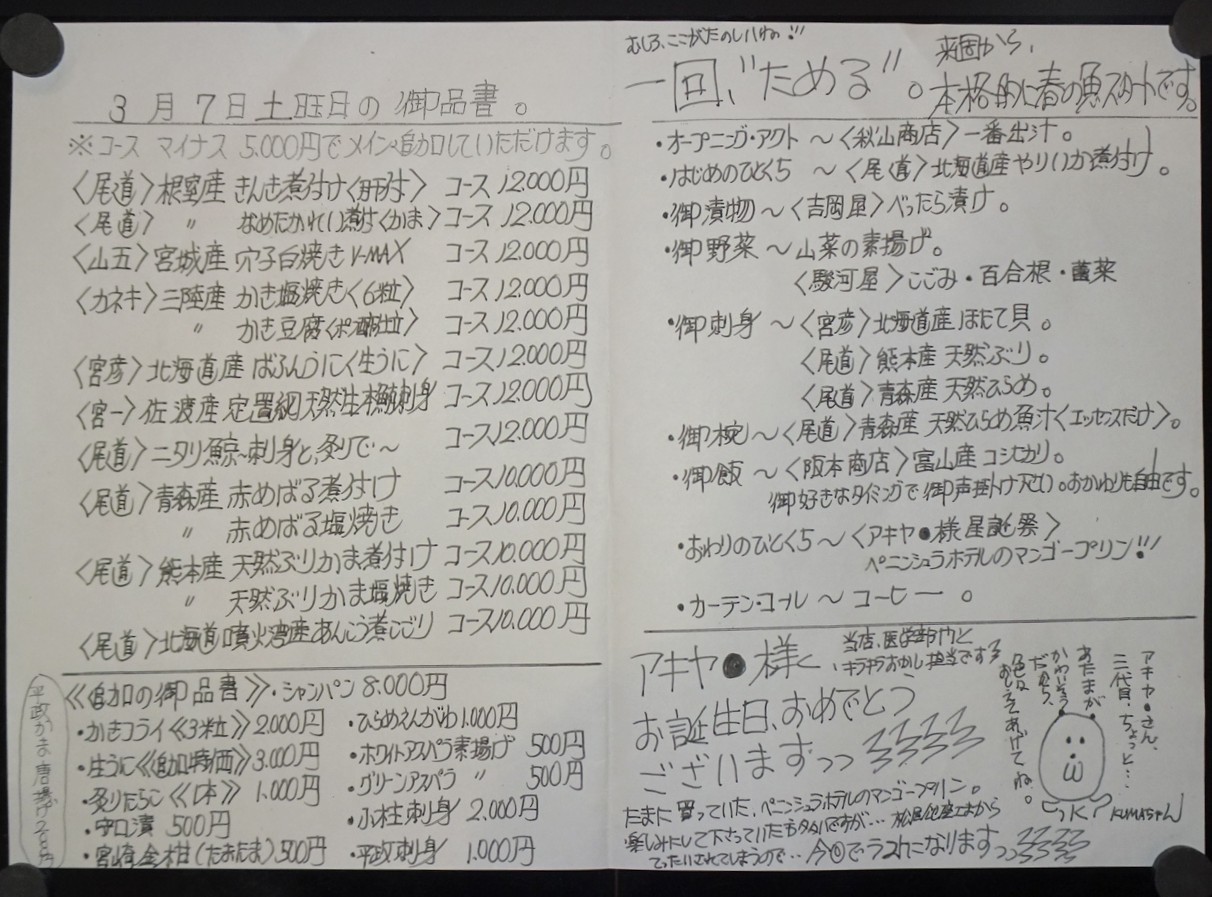 3月7日土曜日の御品書。
※コース マイナス 5.000円でメイン追加していただけます。
〈尾道〉根室産 きんき煮付け〈肝付〉 コース12.000円
〈尾道〉 〃 なめたかれい煮付〈かま〉 コース12.000円
〈山五〉宮城産 穴子白焼き V-MAX コース12.000円
〈カネキ〉三陸産 かき塩焼き〈6粒〉 コース12.000円
〃 かき豆腐〈ポン酢仕立〉 コース12.000円
〈宮彦〉北海道産 ばふんうに〈生うに〉 コース12.000円
〈宮一〉佐渡産 定置網天然生本鮪刺身 コース12.000円
〈尾道〉ニタリ鯨〜刺身と、炙りで〜 コース12.000円
〈尾道〉青森産 赤めばる煮付け コース10.000円
〃 赤めばる塩焼き コース10.000円
〈尾道〉熊本産 天然ぶりかま煮付け コース10.000円
〃 天然ぶりかま塩焼き コース10.000円
〈尾道〉北海道噴火湾産あんこう煮こごり コース10.000円
《追加の御品書》・シャンパン 8.000円
・かきフライ《3粒》2.000円
・生うに《追加特価》3.000円
・炙りたらこ《1本》1.000円
・守口漬 500円
・宮崎金柑(たまたま)500円
・ひらめえんがわ1.000円
・ホワイトアスパラ素揚げ 500円
・グリーンアスパラ 〃 500円
・小柱刺身 2.000円
・平政刺身 1.000円
平政かま唐揚げ2.000円
むしろ、ここがたのしいわね!!
一回、"ためる"。
来週から、
本格的に春の魚スタートです。
・オープニング・アクト 〜〈秋山商店〉一番出汁。
・はじめのひとくち 〜〈尾道〉北海道産 やりいか煮付け。
・御漬物 〜〈吉岡屋〉べったら漬け。
・御野菜 〜 山菜の素揚げ。
〈駿河屋〉こごみ・百合根・蕗薹
・御刺身 〜〈宮彦〉北海道産 ほたて貝。
〈尾道〉熊本産 天然ぶり。
〈尾道〉青森産 天然ひらめ。
・御椀 〜〈尾道〉青森産 天然ひらめ魚汁〈エッセンスだけ〉。
・御飯 〜〈阪本商店〉富山産 コシヒカリ。
御好きなタイミングで御声掛け下さい。おかわりも自由です。
・おわりのひとくち 〜〈アキヤ●様 星誕祭〉
ペニンシュラホテルのマンゴープリン!!
・カーテン・コール 〜 コーヒー 。
アキヤ●様く
当店、医学部門と
キラキラおかし担当です
お誕生日、おめでとう
ございますっっ
たまに買っていた、ペニンシュラホテルのマンゴープリン。
楽しみにして下さっていた方々もいですが… 松屋銀座エキから
てったいされてしまうので… 今回でラストになりますっっ
アキヤ●さん、
三代目、ちょっと…
あたまが
かわいそう
だから、
色々
おしえてあげてね。
KUMAちゃん